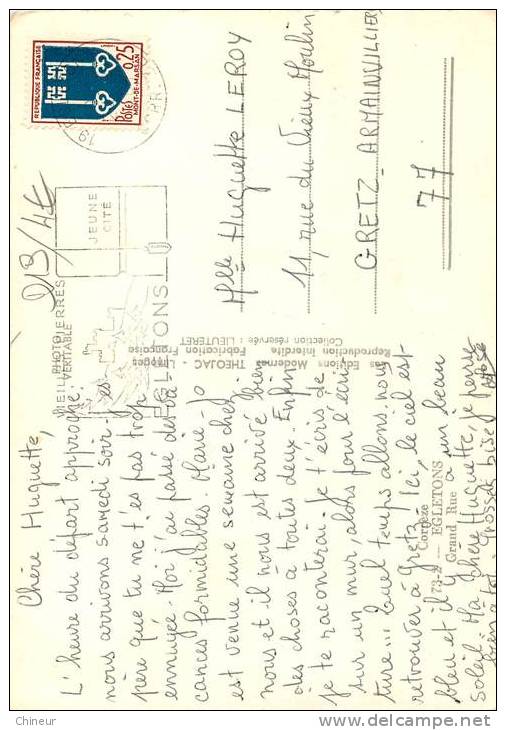 Chère Huguette,
L'heure du départ approche:
nous arrivons samedi soir. J'es-
père que tu ne t'es pas trop
ennuyée. Moi j'ai passé des va-
cances formidables. Marie-Jo
est venue une semaine chez
nous et il nous est arrivé bien
des choses à toutes deux. Enfin
je te raconterai. Je t'écris de
sur un mur, alors pour l'écri-
ture... Quel temps allons-nous
retrouver à Gretz. Ici, le ciel est
bleu et il y a un beau
soleil. Ma chère Huguette, je pense
bien à toi. Grosses bises
Corrèze
73-2 — EGLETONS
Grand Rue
Las Editions Modernes THEOJAC - Limoges
Reproduction Interdite Fabrication Française
Collection réservée : LIEUTERET
PHOTO
VERITABLE
213/4€
VIEILLES PIERRES
JEUNE
CITÉ
EGLETONS
REPUBLIQUE FRANÇAISE
Postes 0,25
MONT-DE-MARSAN
19
Melle Huguette LEROY
11 rue du Vieux Moulin
GRETZ-ARMAINVILLIERS
77
Chineur
www.delcampe.net